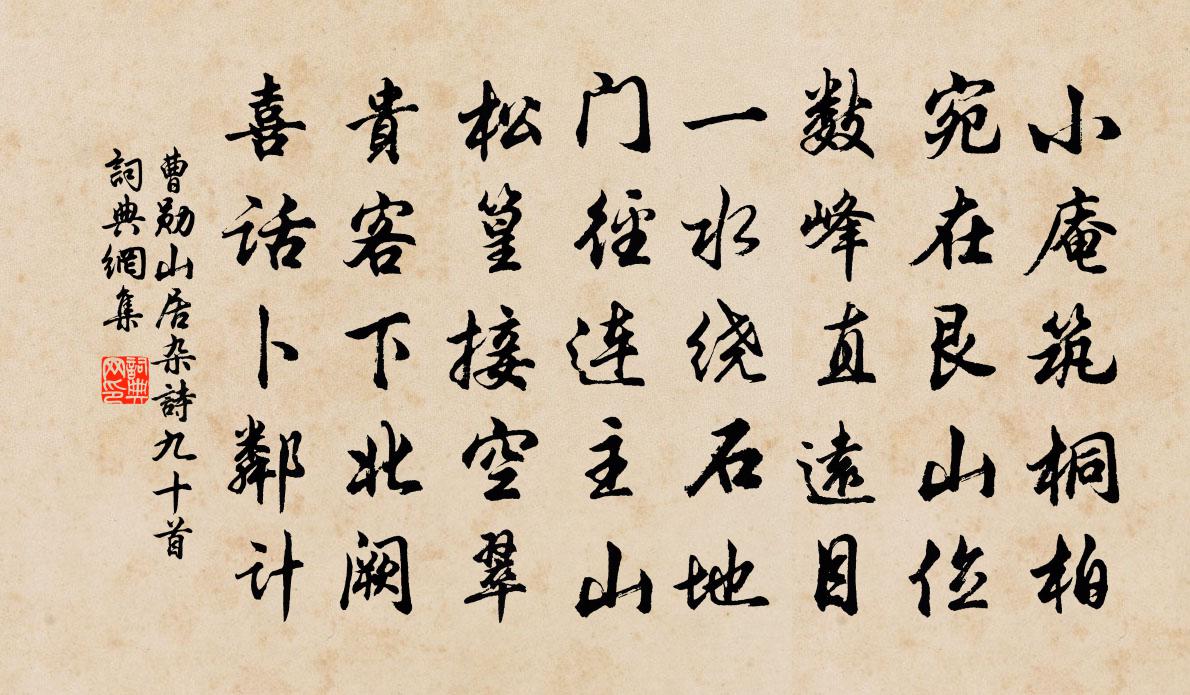 小庵筑桐柏
宛在艮山位
数峰直遠目
一水绕石地
门徑连主山
松篁接空翠
貴客下北阙
喜话卜鄰计
曹勋山居杂詩九十首
詞典網集
詞典网印